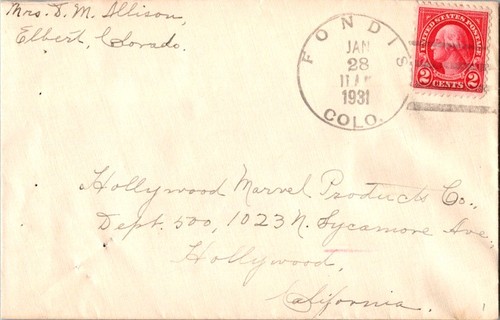 Mrs. D. M. Allison,
Elbert, Colorado.
FONDIS
JAN
28
11 AM
1931
COLO.
UNITED STATES POSTAGE
2 CENTS 2
Hollywood Marvel Products Co.,
Dept. 500, 1023 N. Sycamore Ave.,
Hollywood,
California.